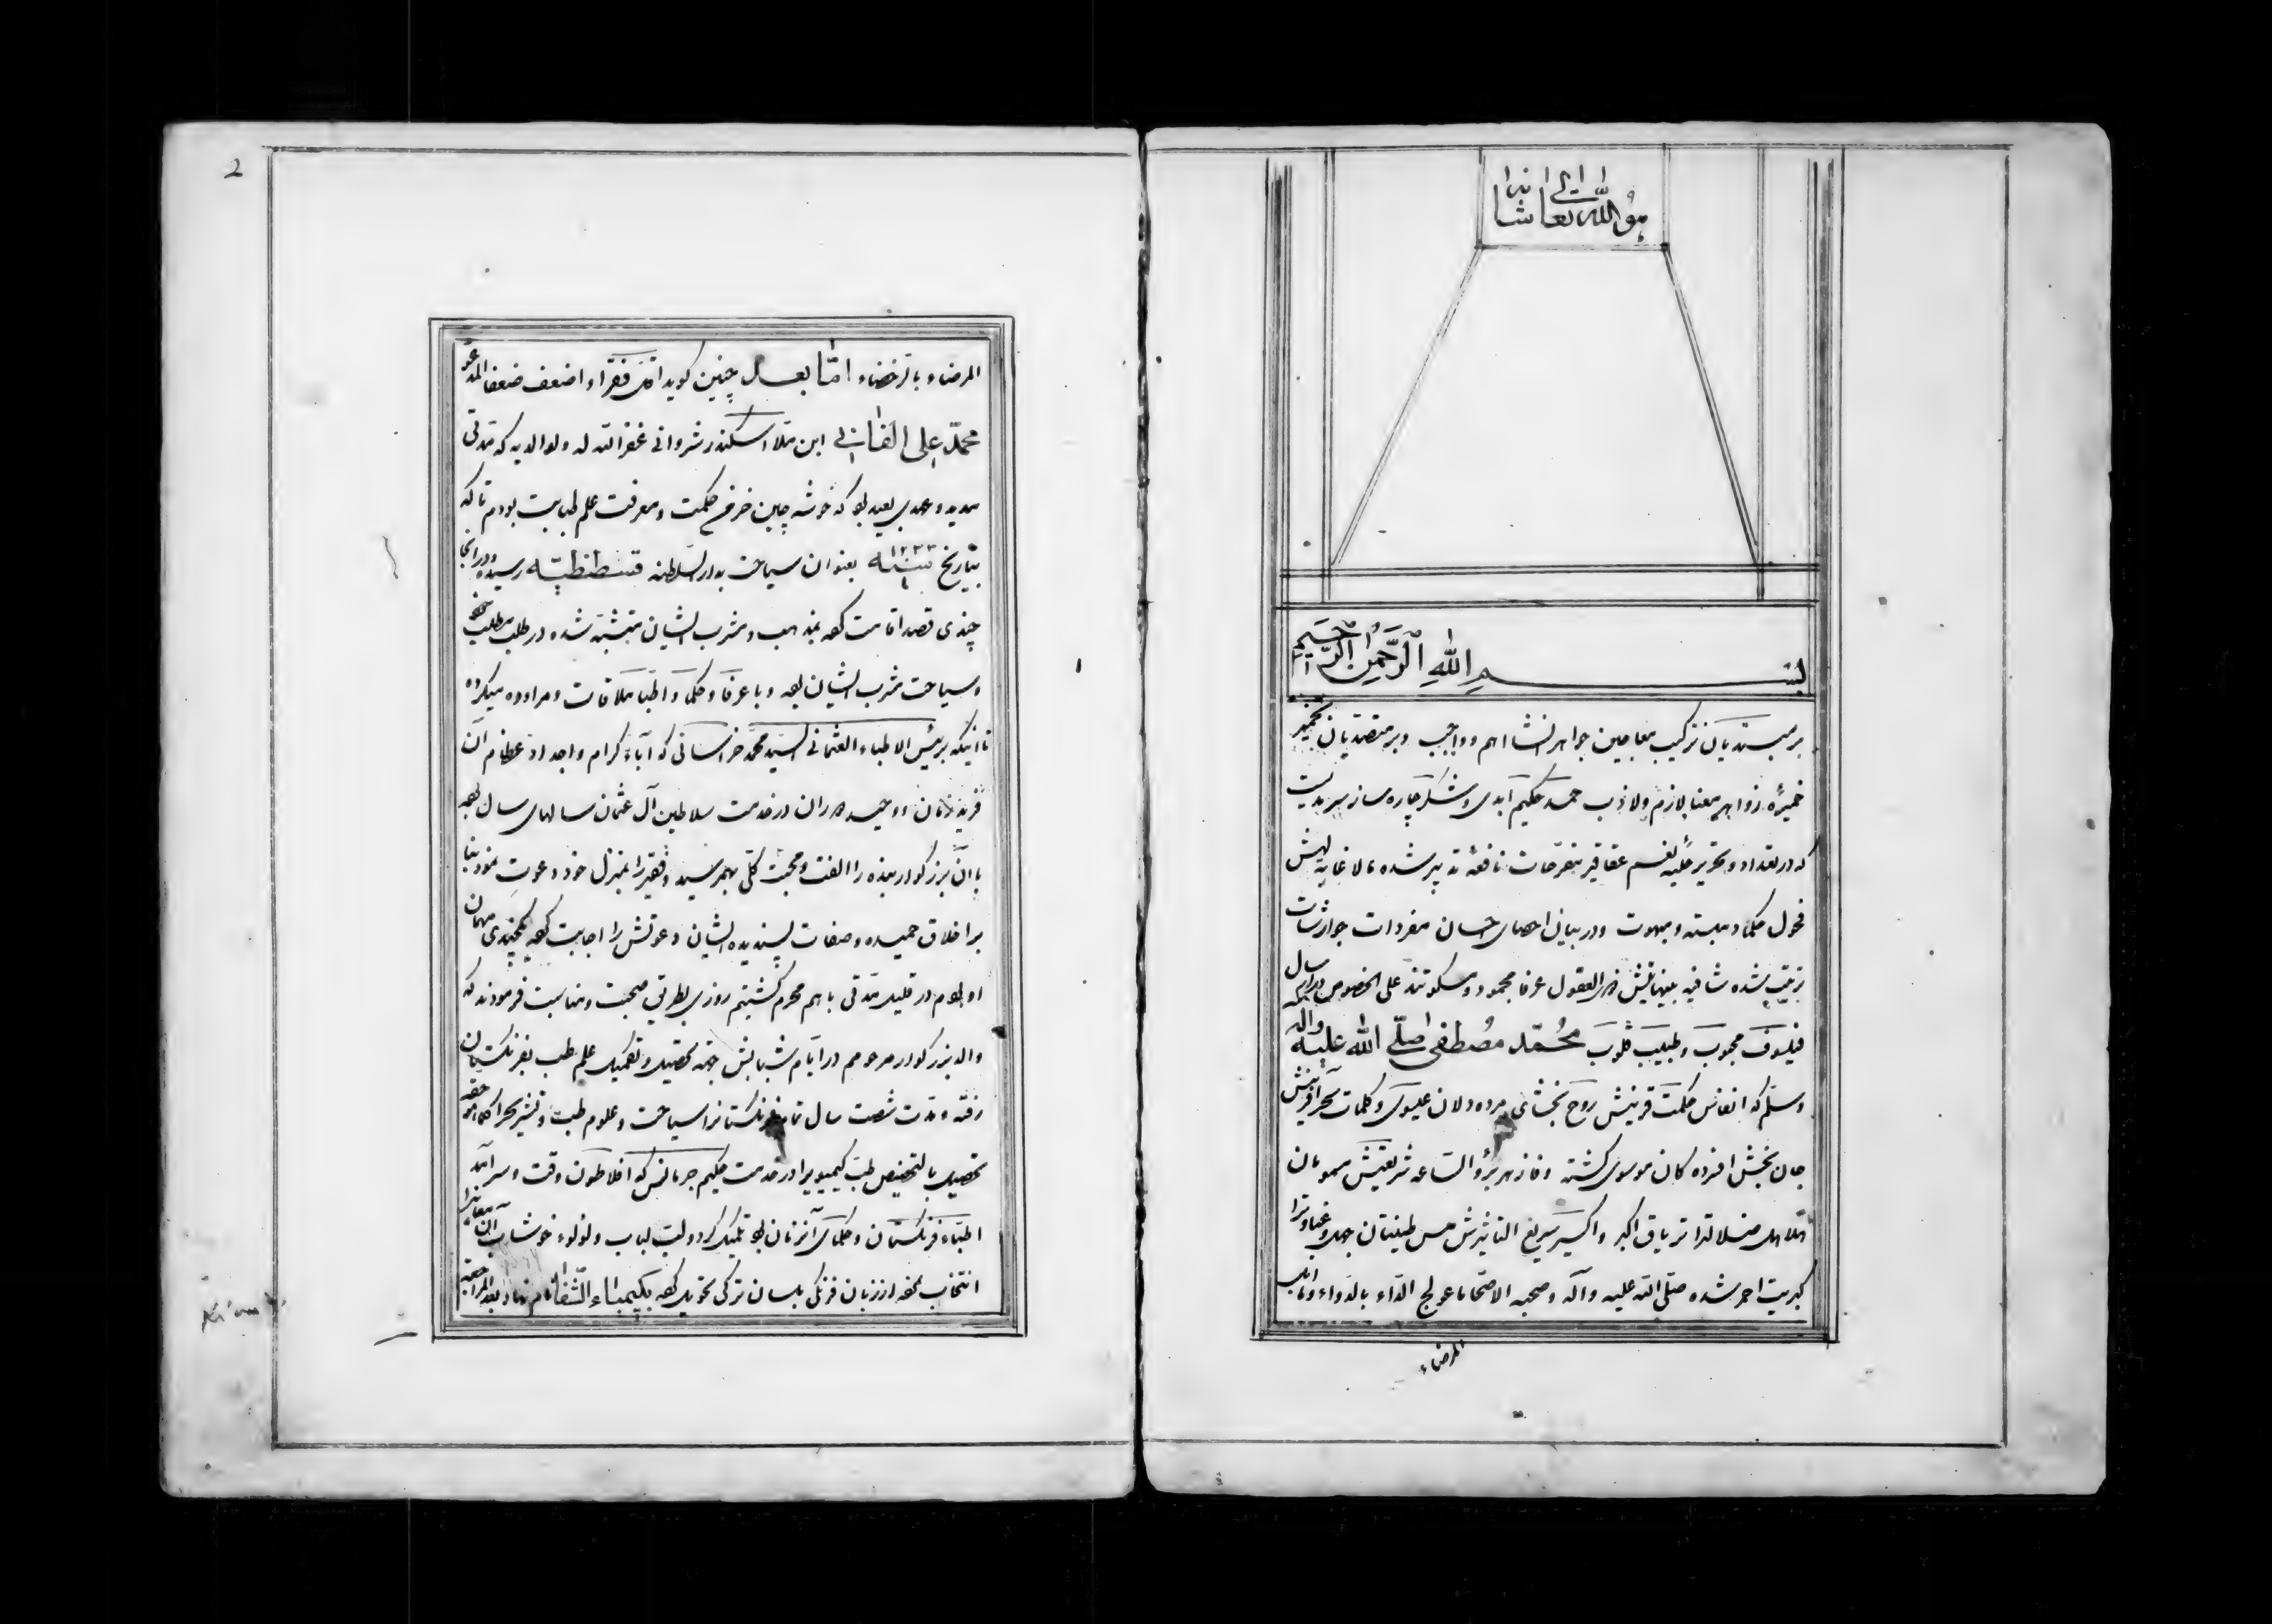 هو الله تعالی شانه
بسم الله الرحمن الرحیم
بر مبتدیان ترکیب معاجین جواهر انشا اهم و واجب و بر متصدیان تخمیر
خمیرۀ زواهر معنا لازم ولاذب حمد حکیم ابدی و شکر چاره ساز سرمدیست
که در تعداد و تحریر عقاقیر مفرحات نافعۀ تدبیر شده مالا نهایه لهش
فحول حکما دبسته و مبهوت و در بیان احصای احسان مفردات جوارشات
ترتیب شده شافیه بینهایتش العقول عرفا و سکوتند علی الخصوص
فیلسوف محبوب و طبیب قلوب محمد مصطفی صلی الله علیه واله
وسلم که انفاس حکمت قرینش روح بخشای مرده دلان عیسوی و کلمات سحر آفرینش
جان بخش افزده کان موسوی کشته و فازهر برؤالساعه شریعتش مسمومان
هلاهل ضلالترا تریاق اکبر و اکسیر سریع التاثیرش مس طینتان جهل و غباوترا
کبریت احمر شده صلی الله علیه وآله وصحبه الا صحا ما عولج الداء بالدواء
المرضاء
2
المرضاء و بالرخضاء اما بعد چنین کوید اقل فقراء و اضعف ضعفا المدعو
محمد علی الفانی ابن ملا اسکندر شروانی غفر الله له ولوالدیه که مدتی
مدید و عهدی بعید بود که خوشه چین خرمن حکمت و معرفت علم طبابت بودم تا که
بتاریخ سنه ۱۲۳۳ بعنوان سیاحت بدار السلطنه قسطنطنیه رسیده و در انجا
چندی قصد اقامت کرده بمذهب و مشرب ایشان متشبه شده در طلب مطلب
و سیاحت مشرب ایشان بوده و با عرفا و حکما و اطبا ملاقات و مراوده میکرده
تا انیکه برئیس الاطباء العثمانی السید محمد خراسانی که آباء کرام و اجداد عظام آن
فرید زمان و وحید دوران در خدمت سلاطین آل عثمان سالهای سال بوده
با آن بزرکوار بنده را الفت و محبت کلی بهمرسید و فقیر را بمنزل خود دعوت نمود بنا
بر اخلاق حمیده و صفات پسندیده ایشان دعوتش را اجابت کرده چندی مهمان
او بودم در قلیل مدتی با هم محرم کشتیم روزی بطریق صحبت و مناسبت فرمودند که
والد بزرکوار مرحومم در ایام شبابش جهة تحصیل و تکمیل علم طب بفرنکستان
رفته و مدت شصت سال تمام فرنکستانرا سیاحت و علوم طب و تشریح را کما هو حقه
تحصیل بالتخصیص طب کیمیوی را در خدمت حکیم جرمانس که افلاطون وقت و سرآمد
اطباء فرنکستان و حکمای آنزمان بود تلمیذ کرد و لب لباب و لؤلؤ خوشاب آن معانیرا
انتخاب نموده از زبان فرنکی بلسان ترکی تحویل کرده بکیمیاء الشفا نام نهاد بعد المراجعة